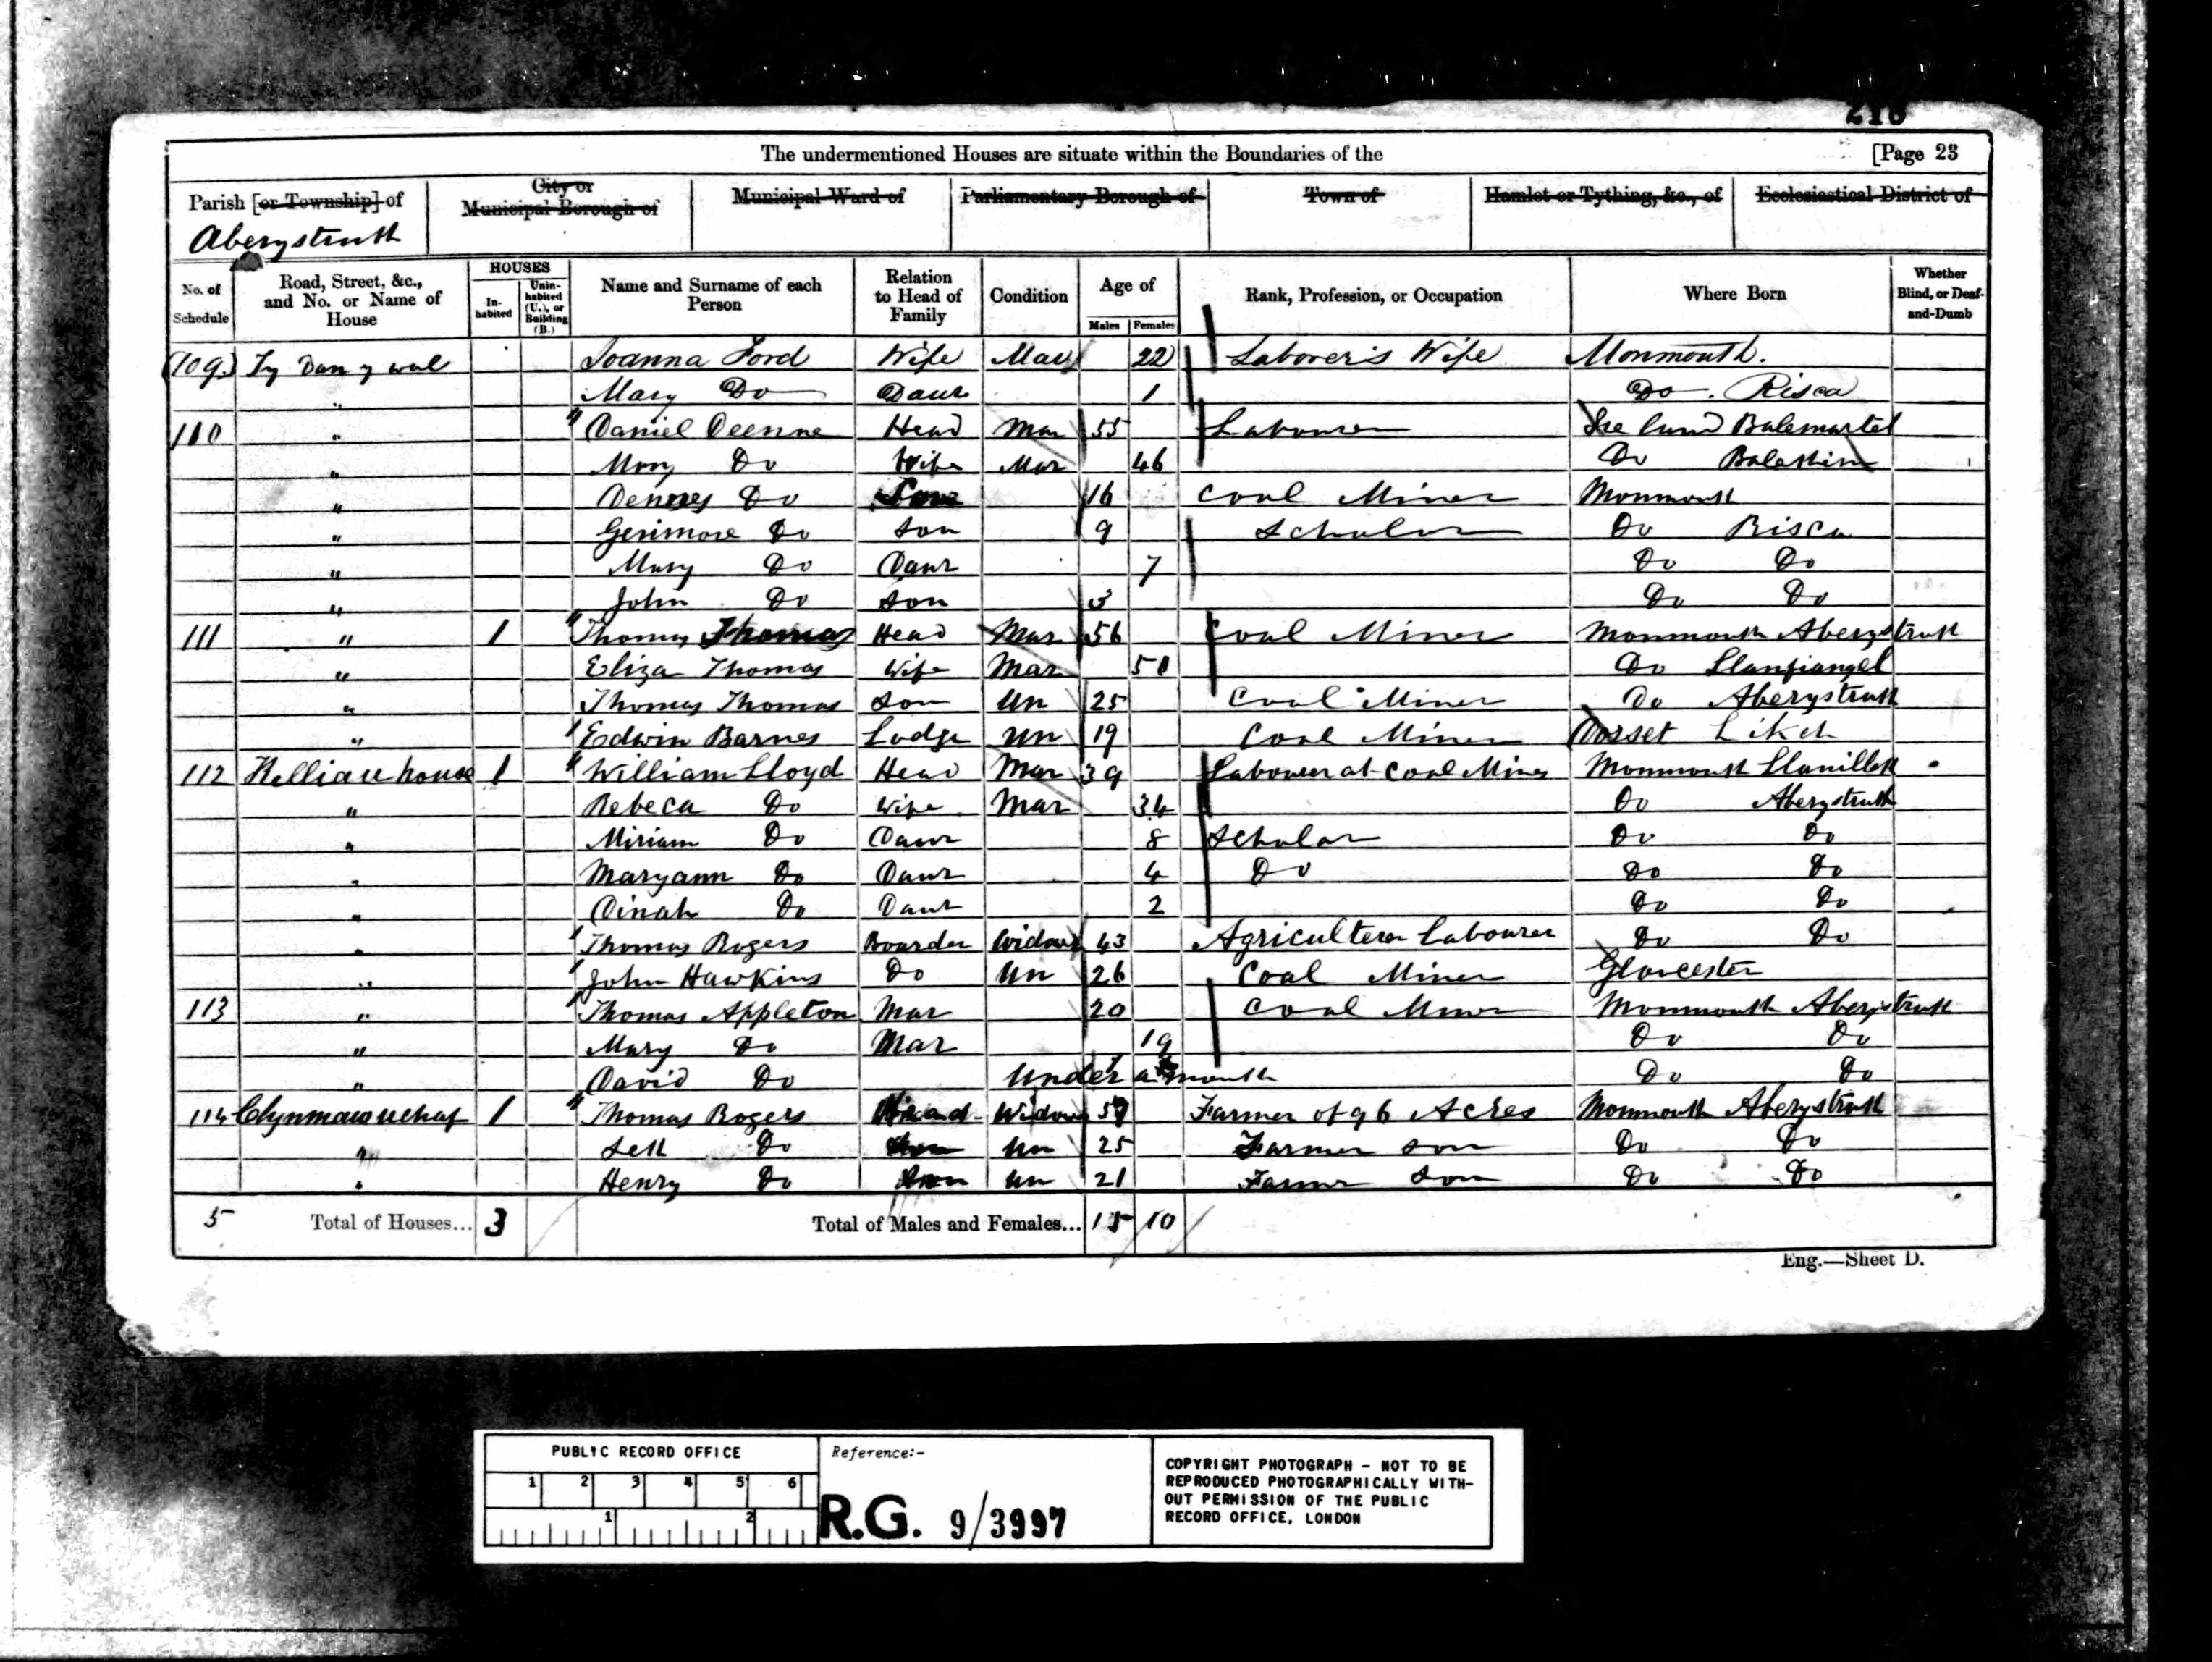 216
The undermentioned Houses are situate within the Boundaries of the [Page 23
Parish [or Township] of
Aberystruth
City or
Municipal Borough of
Municipal Ward of
Parliamentary Borough of
Town of
Hamlet or Tything, &c., of
Ecclesiastical District of
No. of Schedule
Road, Street, &c., and No. or Name of House
HOUSES
In-habited
Unin-habited (U.), or Building (B.)
Name and Surname of each Person
Relation to Head of Family
Condition
Age of
Males Females
Rank, Profession, or Occupation
Where Born
Whether Blind, or Deaf-and-Dumb
(109) Ty Dan y wal Joanna Ford Wife Mar 22 Laborer's Wife Monmouth.
" Mary Do Daur 1 Do. Risca
110 " Daniel Deenne Head Mar 55 Labourer Balemartel
" Mary Do Wife Mar 46 Do
" Do Son 16 Coal Miner Monmouth
" Gerimore Do Son 9 Scholar Do Risca
" Mary Do Daur 7 Do Do
" John Do Son 3 Do Do
111 " 1 Thomas Thomas Head Mar 56 Coal Miner Monmouth Aberystruth
" Eliza Thomas Wife Mar 51 Do Llanfiangel
" Thomas Thomas Son Un 25 Coal Miner Do Aberystruth
" Edwin Barnes Lodge Un 19 Coal Miner Dorset
112 house 1 William Lloyd Head Mar 39 Labourer at Coal Mines Monmouth Llanilleth
" Rebeca Do Wife Mar 34 Do Aberystruth
" Miriam Do Daur 8 Scholar Do Do
" Maryann Do Daur 4 Do Do Do
" Dinah Do Daur 2 Do Do
" Thomas Rogers Boarder Widowr 43 Agriculterer Labourer Do Do
" John Hawkins Do Un 26 Coal Miner Glorcester
113 " Thomas Appleton Mar 20 Coal Miner Monmouth Aberystruth
" Mary Do Mar 19 Do Do
" David Do Under a month Do Do
114 1 Thomas Rogers Head Widowr 57 Farmer of 96 Acres Monmouth Aberystruth
" Seth Do Son Un 25 Farmer son Do Do
" Henry Do Son Un 21 Farmer Son Do Do
5 Total of Houses... 3 Total of Males and Females... 15 10
Eng.—Sheet D.
PUBLIC RECORD OFFICE
1 2 3 4 5 6
1 2
Reference:-
R.G. 9/3997
COPYRIGHT PHOTOGRAPH - NOT TO BE
REPRODUCED PHOTOGRAPHICALLY WITH-
OUT PERMISSION OF THE PUBLIC
RECORD OFFICE, LONDON